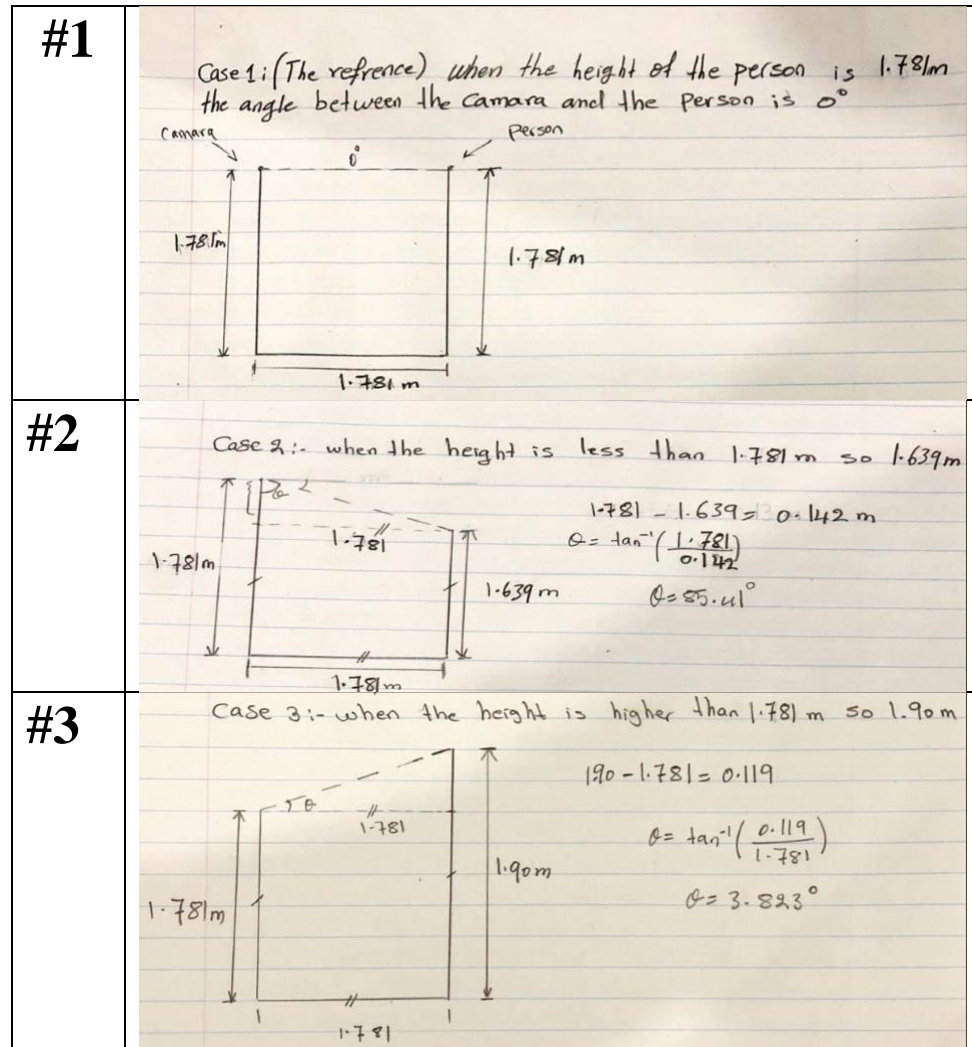 #1
Case 1:(The refrence) when the height of the person is 1.781m
the angle between the Camara and the Person is 0°
Camara
Person
0°
1.781m
1.781 m
1.781 m
#2
Case 2:- when the height is less than 1.781 m so 1.639m
θ
1.781
1.781m
1.639 m
1.781m
1.781 - 1.639 = 0.142 m
θ = tan⁻¹(1.781/0.142)
θ = 85.41°
#3
Case 3:- when the height is higher than 1.781 m so 1.90m
θ
1.781
1.781m
1.90m
1.781
190 - 1.781 = 0.119
θ = tan⁻¹(0.119/1.781)
θ = 3.823°